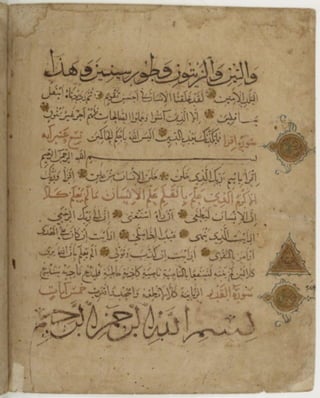 والتين والزيتون وطور سينين وهذا
البلد الامين لقد خلقنا الانسان في احسن تقويم ثم رددناه اسفل
سافلين الا الذين آمنوا وعملوا الصالحات فلهم اجر غير ممنون
سورة اقرا فما يكذبك بعد بالدين اليس الله باحكم الحاكمين تسع عشر آية
بسم الله الرحمن الرحيم
اقرا باسم ربك الذي خلق خلق الانسان من علق اقرا وربك
الاكرم الذي علم بالقلم علم الانسان ما لم يعلم كلا
ان الانسان ليطغى ان رآه استغنى ان الى ربك الرجعى
ارايت الذي ينهى عبدا اذا صلى ارايت ان كان على الهدى
او امر بالتقوى ارايت ان كذب وتولى الم يعلم بان الله يرى
كلا لئن لم ينته لنسفعا بالناصية ناصية كاذبة خاطئة فليدع ناديه سندع
سورة القدر الزبانية كلا لا تطعه واسجد واقترب خمس آيات
بسم الله الرحمن الرحيم